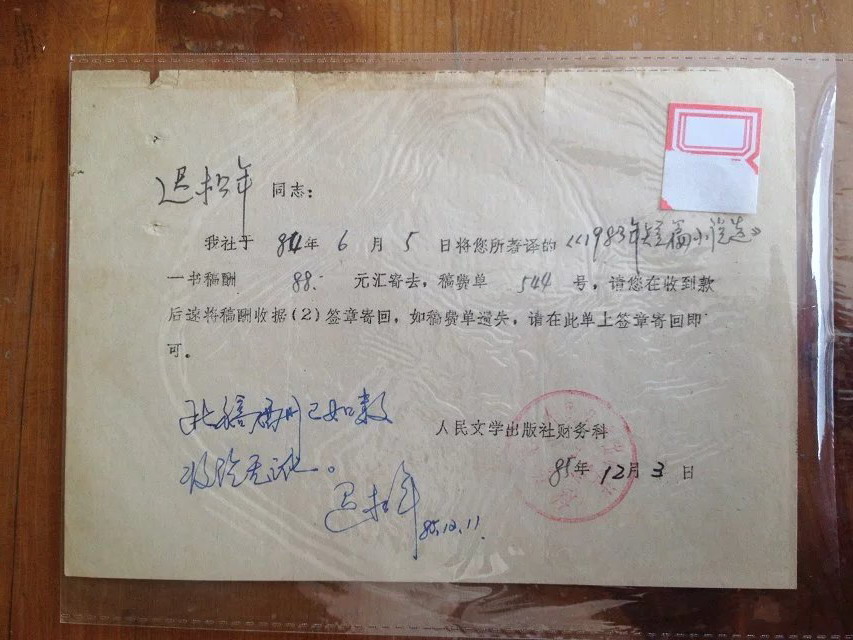 迟松年 同志：
我社于 84年 6 月 5 日将您所著译的《1983年短篇小说选》
一书稿酬 88. 元汇寄去，稿费单 544 号，请您在收到款
后速将稿酬收据(2)签章寄回，如稿费单遗失，请在此单上签章寄回即
可。
此稿费用已如数
收讫无讹。
迟松年
85.12.11.
人民文学出版社财务科
85年 12月 3 日